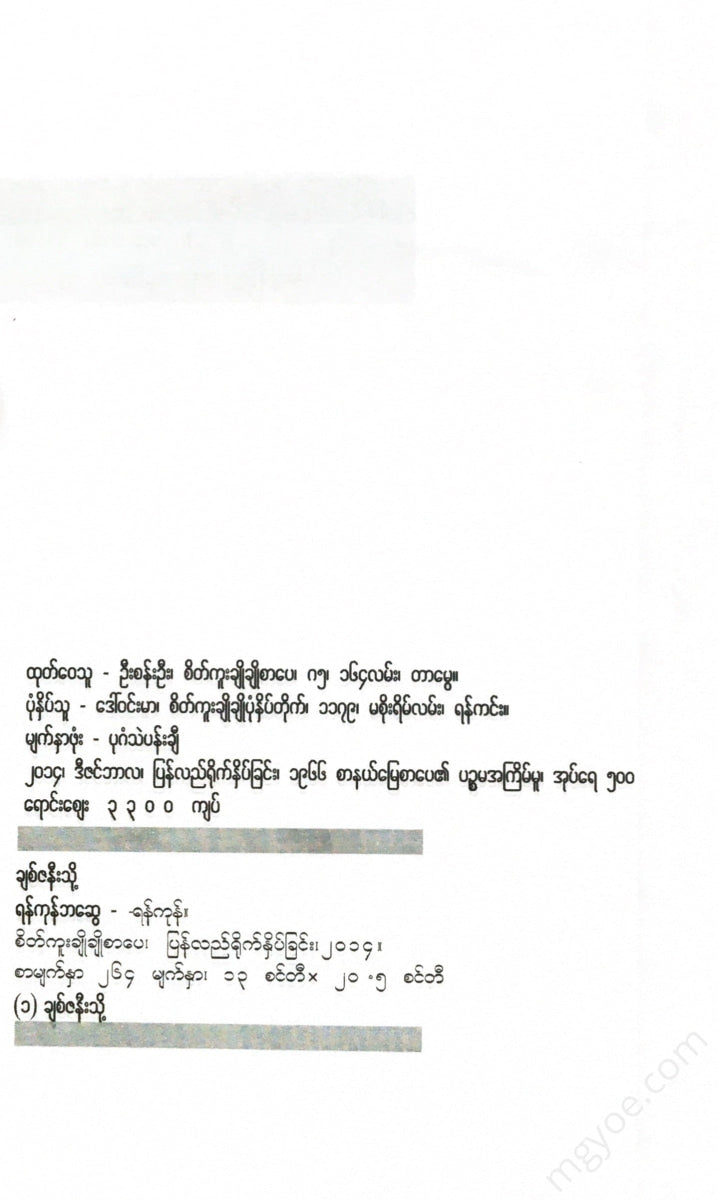 ထုတ်ဝေသူ - ဦးစန်းဦး၊ စိတ်ကူးချိုချိုစာပေ၊ ဂ၅၊ ၁၆၄လမ်း၊ တာမွေ။
ပုံနှိပ်သူ - ဒေါ်ဝင်းမာ၊ စိတ်ကူးချိုချိုပုံနှိပ်တိုက်၊ ၁၁၇၉၊ မစိုးရိမ်လမ်း၊ ရန်ကင်း။
မျက်နှာဖုံး - ပုဂံသဲပန်းချီ
၂၀၁၄၊ ဒီဇင်ဘာလ၊ ပြန်လည်ရိုက်နှိပ်ခြင်း၊ ၁၉၆၆ စာနယ်မြေစာပေ၏ ပဉ္စမအကြိမ်မူ၊ အုပ်ရေ ၅၀၀
ရောင်းဈေး ၃ ၃ ၀ ၀ ကျပ်
ချစ်ဇနီးသို့
ရန်ကုန်ဘဆွေ - -ရန်ကုန်။
စိတ်ကူးချိုချိုစာပေ၊ ပြန်လည်ရိုက်နှိပ်ခြင်း၊၂၀၁၄။
စာမျက်နှာ ၂၆၄ မျက်နှာ၊ ၁၃ စင်တီ× ၂၀ .၅ စင်တီ
(၁) ချစ်ဇနီးသို့
mgyoe.com